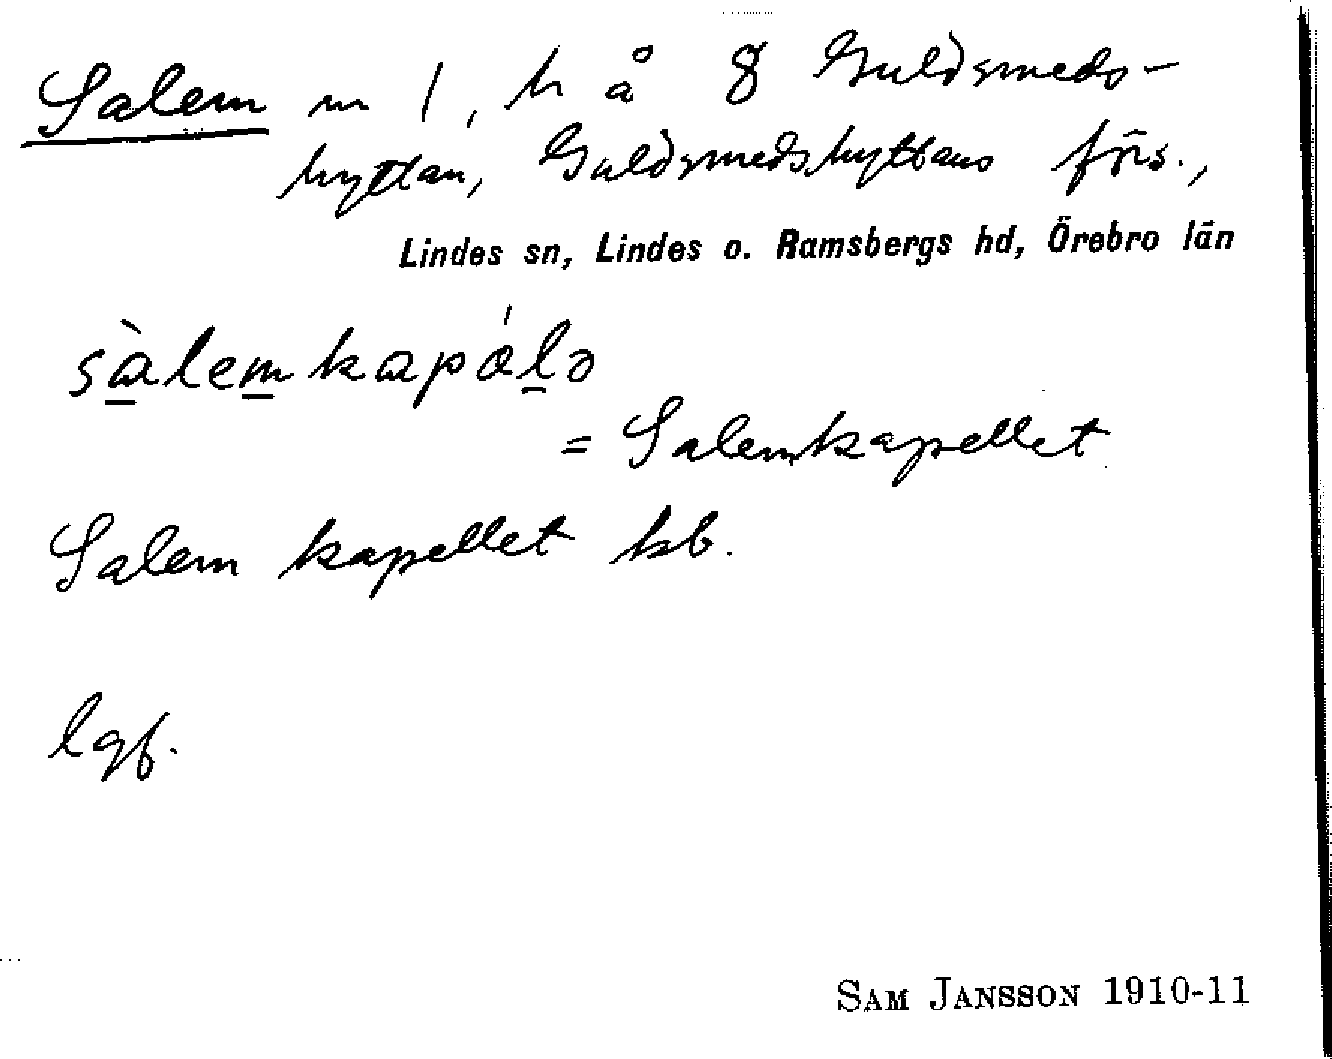 Salem nr 1, h å 8 Guldsmeds-
hyttan, Guldsmedshyttans förs.,
Lindes sn, Lindes o. Ramsbergs hd, Örebro län
= Salemkapellet
Salem kapellet kb.
lgf.
SAM JANSSON 1910-11